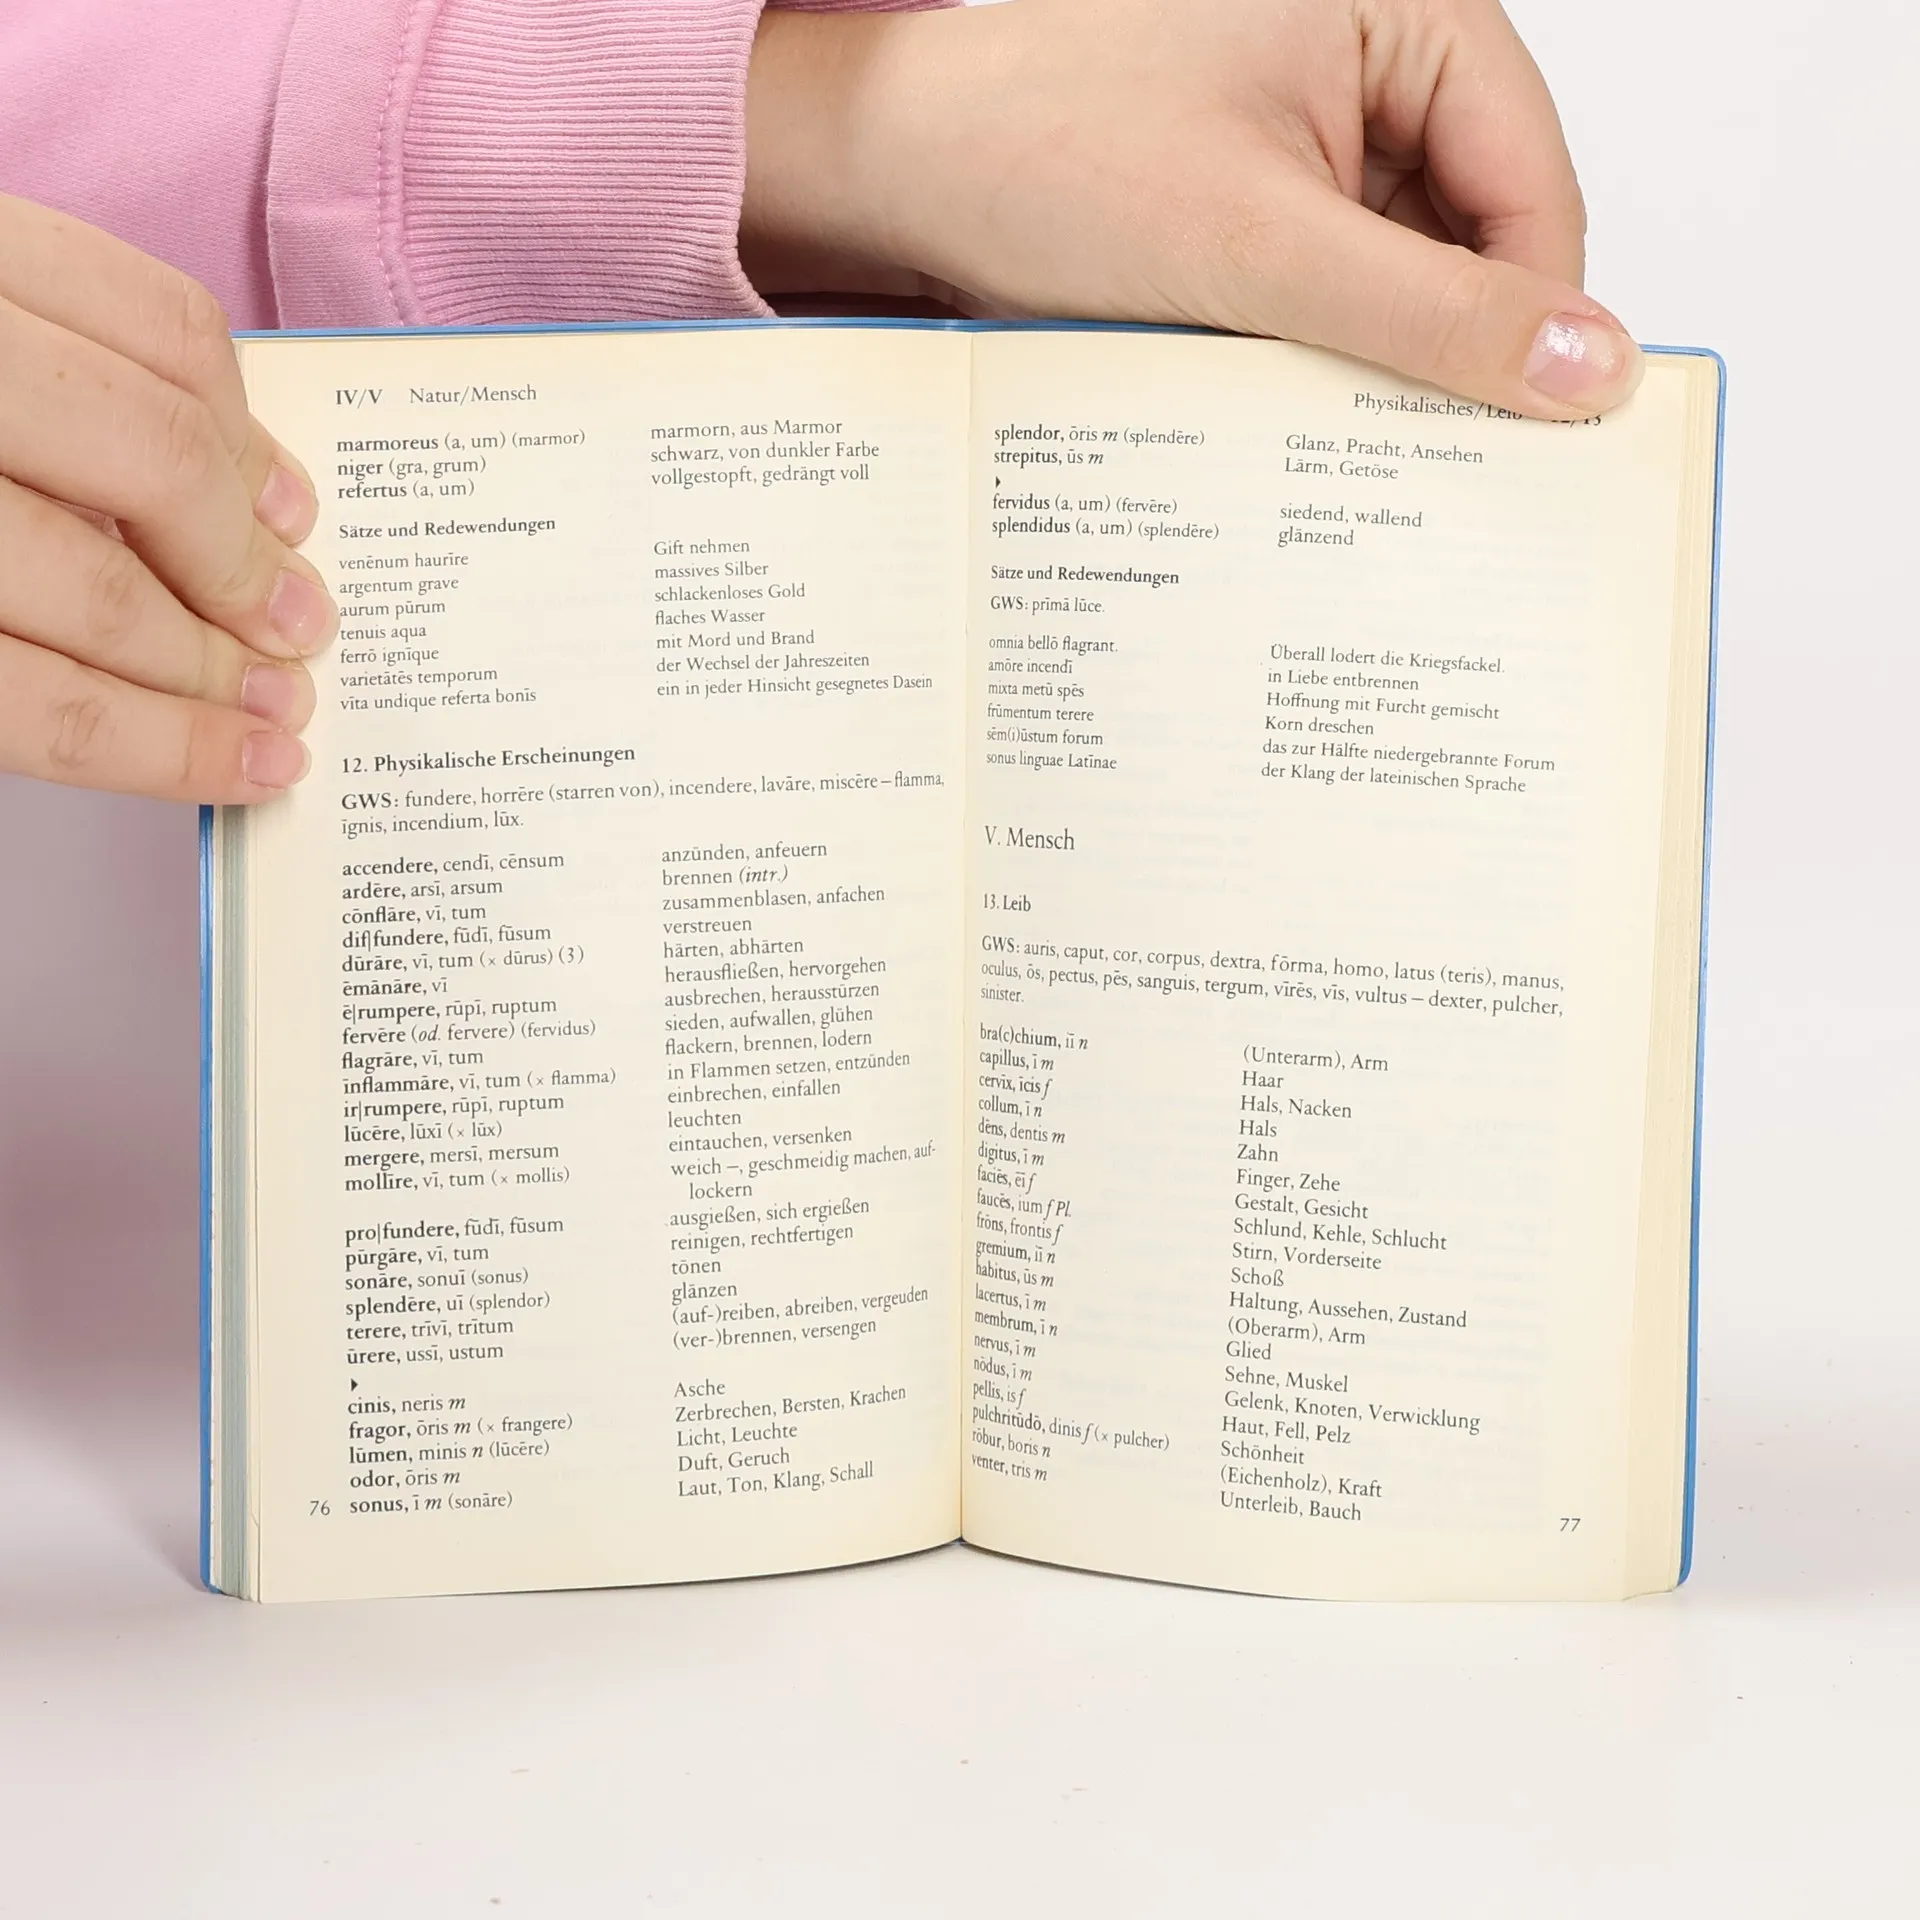 IV/V Natur/Mensch
marmoreus (a, um) (marmor) marmorn, aus Marmor
niger (gra, grum) schwarz, von dunkler Farbe
refertus (a, um) vollgestopft, gedrängt voll
Sätze und Redewendungen
venēnum haurīre Gift nehmen
argentum grave massives Silber
aurum pūrum schlackenloses Gold
tenuis aqua flaches Wasser
ferrō ignīque mit Mord und Brand
varietātēs temporum der Wechsel der Jahreszeiten
vīta undique referta bonīs ein in jeder Hinsicht gesegnetes Dasein
12. Physikalische Erscheinungen
GWS: fundere, horrēre (starren von), incendere, lavāre, miscēre – flamma,
īgnis, incendium, lūx.
accendere, cendī, cēnsum anzünden, anfeuern
ardēre, arsī, arsum brennen (intr.)
cōnflāre, vī, tum zusammenblasen, anfachen
dif|fundere, fūdī, fūsum verstreuen
dūrāre, vī, tum (× dūrus) (3) härten, abhärten
ēmānāre, vī herausfließen, hervorgehen
ē|rumpere, rūpī, ruptum ausbrechen, herausstürzen
fervēre (od. fervere) (fervidus) sieden, aufwallen, glühen
flagrāre, vī, tum flackern, brennen, lodern
īnflammāre, vī, tum (× flamma) in Flammen setzen, entzünden
ir|rumpere, rūpī, ruptum einbrechen, einfallen
lūcēre, lūxī (× lūx) leuchten
mergere, mersī, mersum eintauchen, versenken
mollīre, vī, tum (× mollis) weich –, geschmeidig machen, auf-
lockern
pro|fundere, fūdī, fūsum ausgießen, sich ergießen
pūrgāre, vī, tum reinigen, rechtfertigen
sonāre, sonuī (sonus) tönen
splendēre, uī (splendor) glänzen
terere, trīvī, trītum (auf-)reiben, abreiben, vergeuden
ūrere, ussī, ustum (ver-)brennen, versengen
cinis, neris m Asche
fragor, ōris m (× frangere) Zerbrechen, Bersten, Krachen
lūmen, minis n (lūcēre) Licht, Leuchte
odor, ōris m Duft, Geruch
sonus, ī m (sonāre) Laut, Ton, Klang, Schall
76
Physikalisches/Leib 12/13
splendor, ōris m (splendēre) Glanz, Pracht, Ansehen
strepitus, ūs m Lärm, Getöse
fervidus (a, um) (fervēre) siedend, wallend
splendidus (a, um) (splendēre) glänzend
Sätze und Redewendungen
GWS: prīmā lūce.
omnia bellō flagrant. Überall lodert die Kriegsfackel.
amōre incendī in Liebe entbrennen
mixta metū spēs Hoffnung mit Furcht gemischt
frūmentum terere Korn dreschen
sēm(i)ūstum forum das zur Hälfte niedergebrannte Forum
sonus linguae Latīnae der Klang der lateinischen Sprache
V. Mensch
13. Leib
GWS: auris, caput, cor, corpus, dextra, fōrma, homo, latus (teris), manus,
oculus, ōs, pectus, pēs, sanguis, tergum, vīrēs, vīs, vultus – dexter, pulcher,
sinister.
bra(c)chium, iī n (Unterarm), Arm
capillus, ī m Haar
cervīx, īcis f Hals, Nacken
collum, ī n Hals
dēns, dentis m Zahn
digitus, ī m Finger, Zehe
faciēs, ēī f Gestalt, Gesicht
faucēs, ium f Pl. Schlund, Kehle, Schlucht
frōns, frontis f Stirn, Vorderseite
gremium, iī n Schoß
habitus, ūs m Haltung, Aussehen, Zustand
lacertus, ī m (Oberarm), Arm
membrum, ī n Glied
nervus, ī m Sehne, Muskel
nōdus, ī m Gelenk, Knoten, Verwicklung
pellis, is f Haut, Fell, Pelz
pulchritūdō, dinis f (× pulcher) Schönheit
rōbur, boris n (Eichenholz), Kraft
venter, tris m Unterleib, Bauch
77